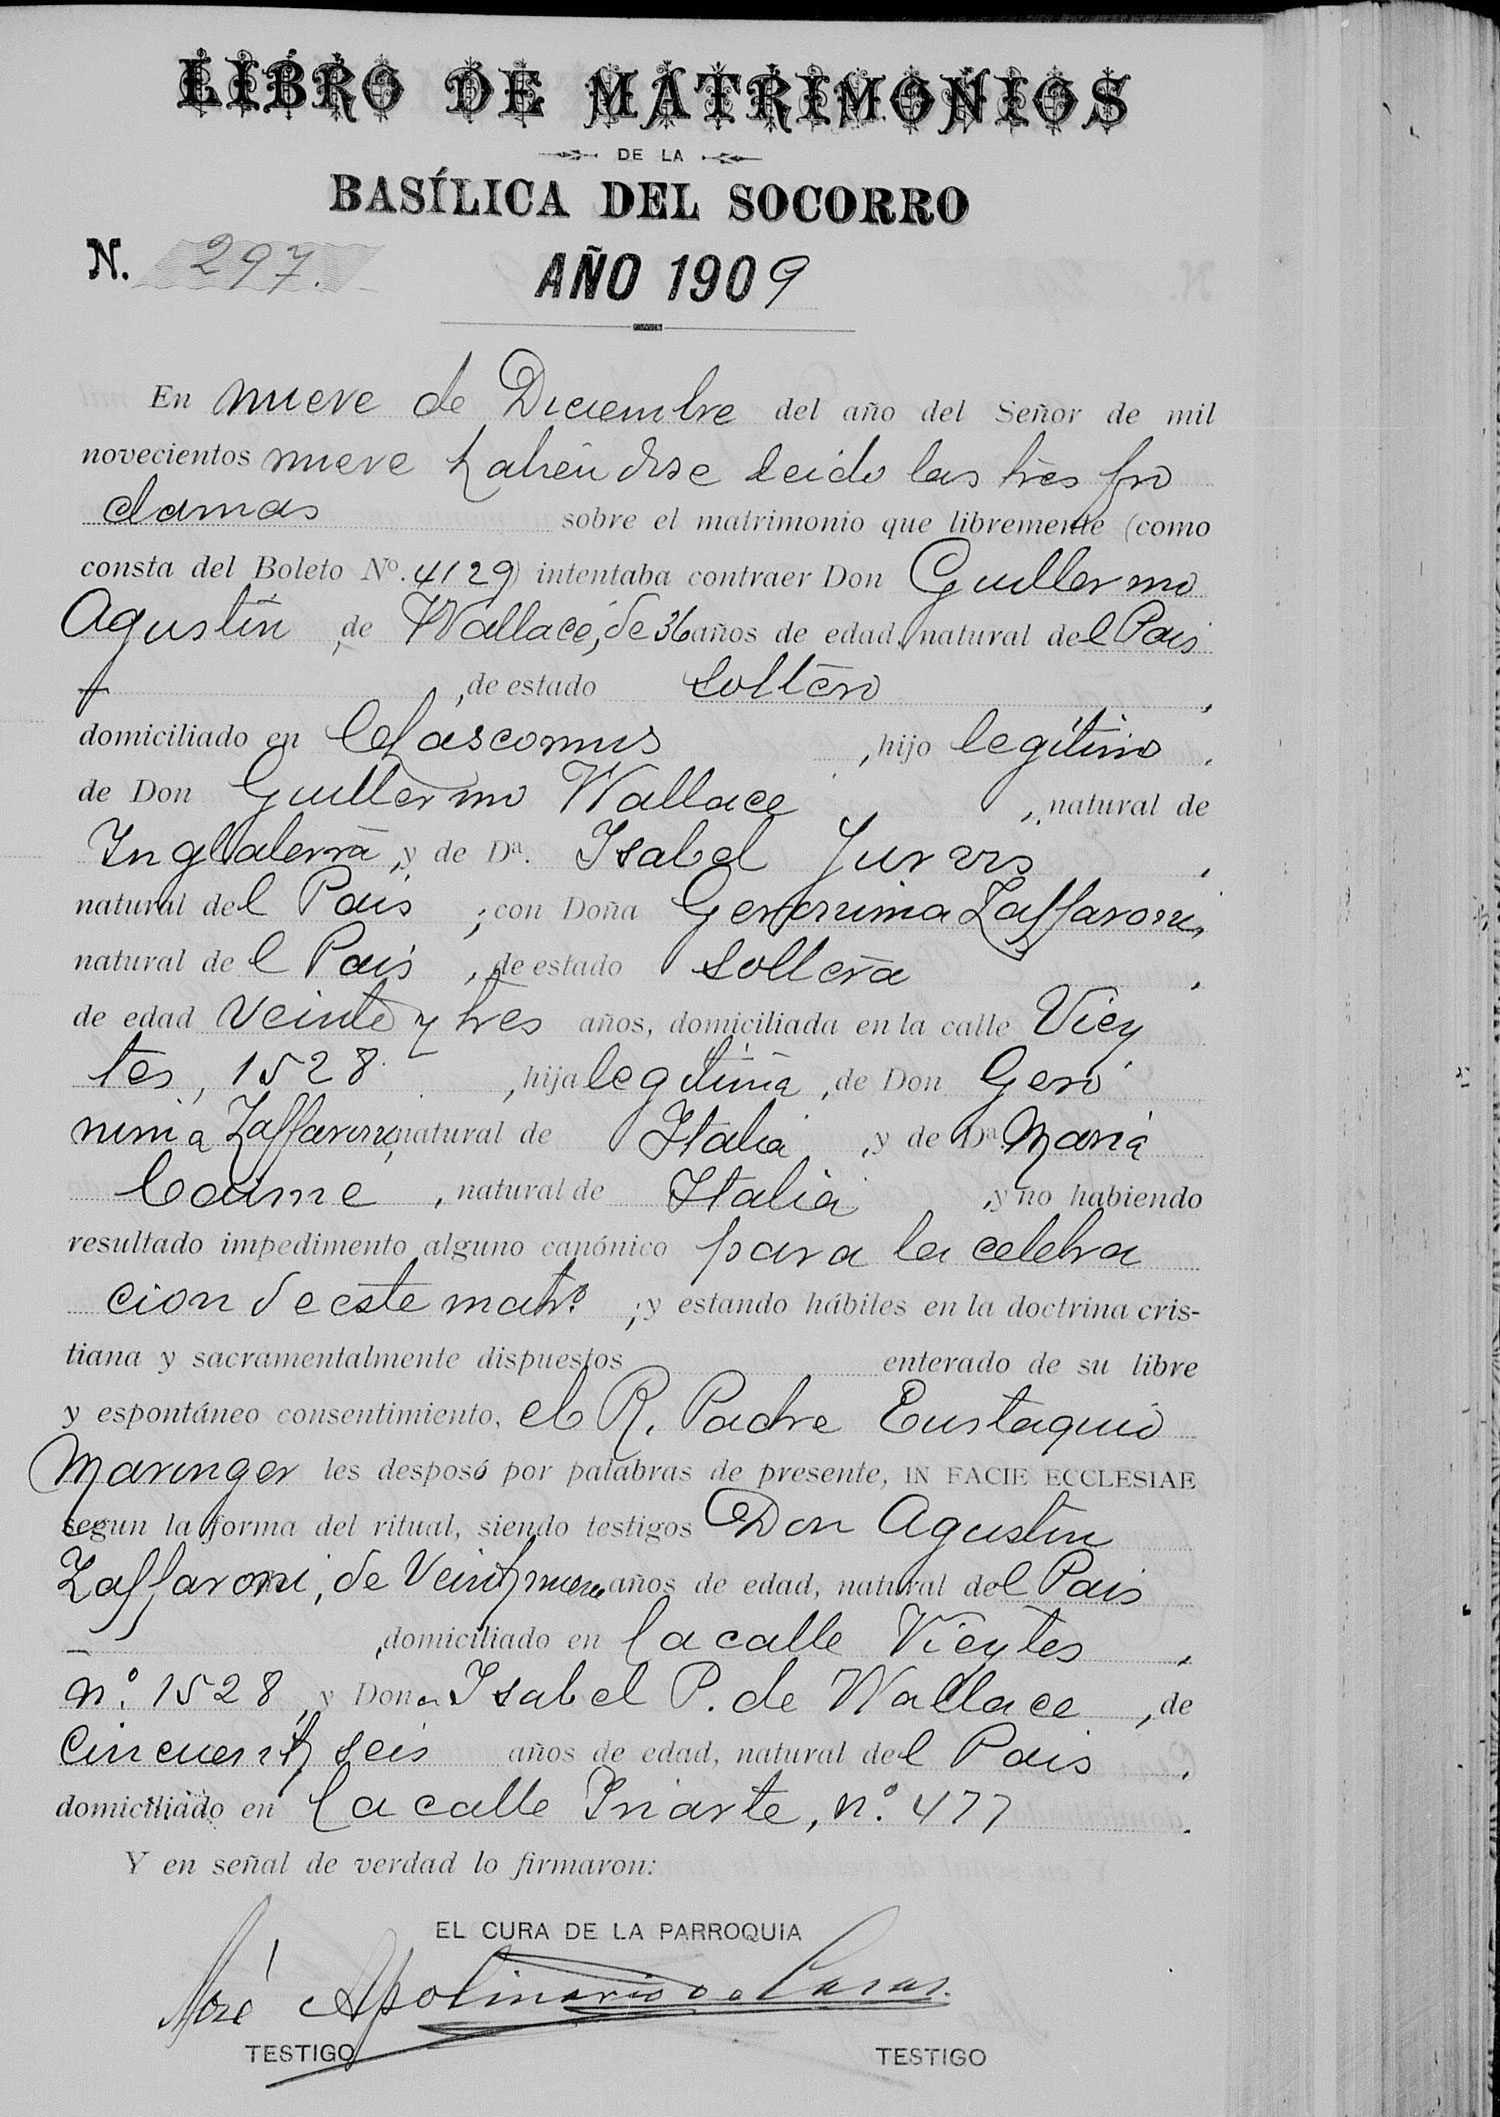 LIBRO DE MATRIMONIOS
DE LA
BASÍLICA DEL SOCORRO
N. 297.
AÑO 1909
En nueve de Diciembre del año del Señor de mil
novecientos nueve habiendose leido las tres pro
clamas sobre el matrimonio que libremente (como
consta del Boleto Nº. 4129) intentaba contraer Don Guillermo
Agustin, de Wallace, de 36 años de edad, natural del Pais
, de estado soltero,
domiciliado en Chascomus, hijo legítimo,
de Don Guillermo Wallace, natural de
Inglaterra, y de Dª. Isabel
natural del Pais; con Doña Geronima Zaffaroni,
natural del Pais, de estado soltera,
de edad veinte y tres años, domiciliada en la calle Viey
tes, 1528, hija legítima, de Don Gero
nima Zaffaroni, natural de Italia, y de Dª Maria
, natural de Italia, y no habiendo
resultado impedimento alguno canónico para la celebra
cion de este matrº; y estando hábiles en la doctrina cris-
tiana y sacramentalmente dispuestos enterado de su libre
y espontáneo consentimiento, el R. Padre Eustaquio
Maringer les desposó por palabras de presente, IN FACIE ECCLESIAE
segun la forma del ritual, siendo testigos Don Agustin
Zaffaroni, de Veintynueve años de edad, natural del Pais
, domiciliado en la calle Vieytes,
nº. 1528, y Dona Isabel P. de Wallace, de
Cincuentay seis años de edad, natural del Pais,
domiciliado en la calle Iriarte, nº. 477.
Y en señal de verdad lo firmaron:
EL CURA DE LA PARROQUIA
José Apolinario de Casas.
TESTIGO TESTIGO